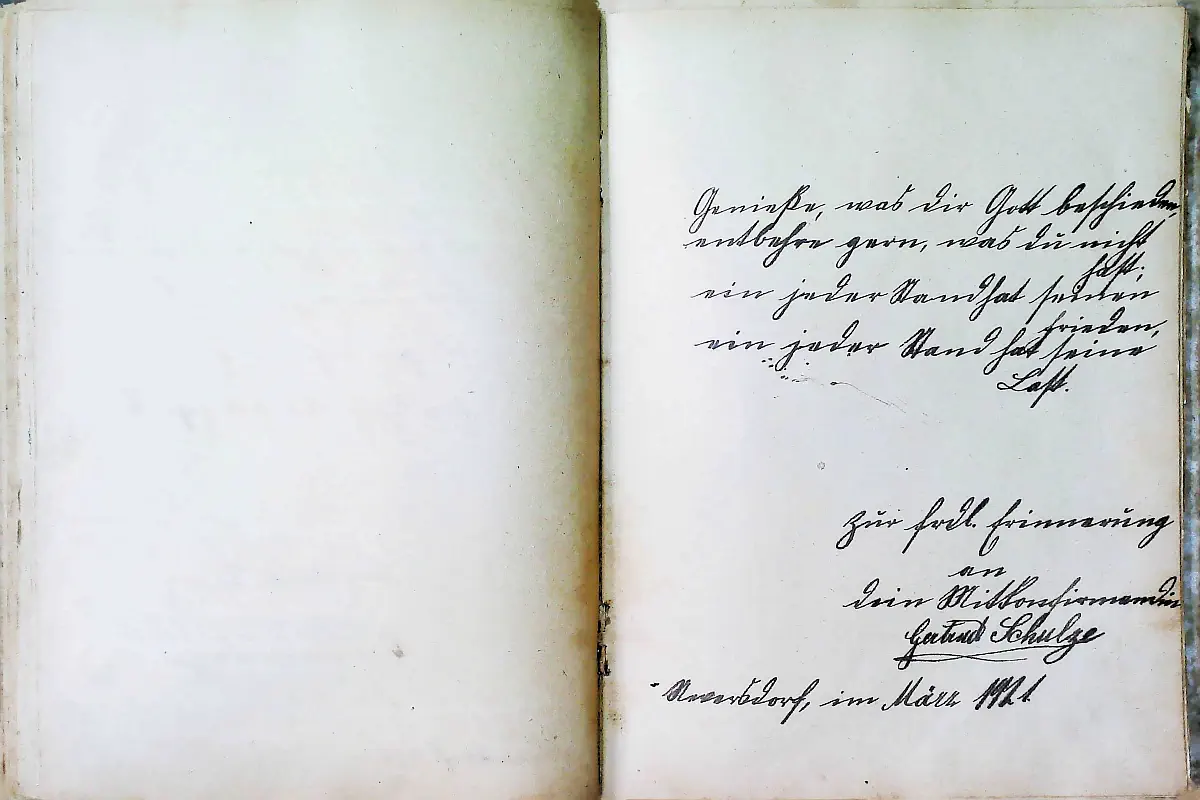 Genieße, was dir Gott beschieden,
entbehre gern, was du nicht
hast;
ein jeder Stand hat seinen
Frieden,
ein jeder Stand hat seine
Last.
Zur frdl. Erinnerung
an
dein Mitkonfirmandin
Gertrud Schulze
im März 1921